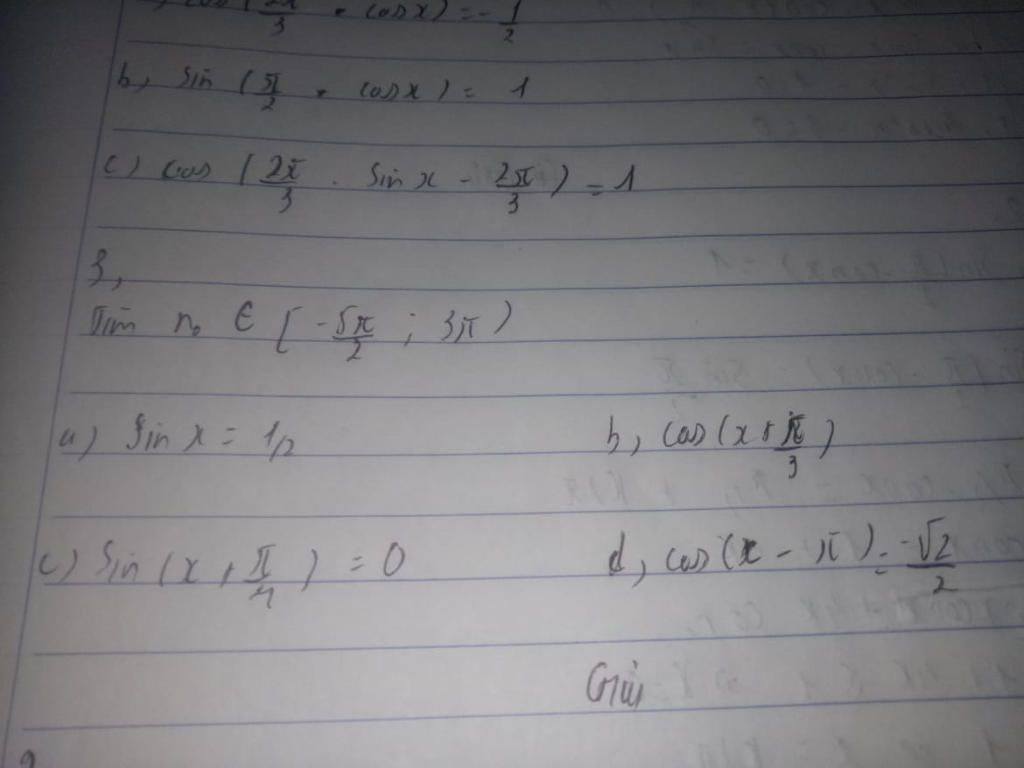 cos(2π/3 . cosx) = -1/2
b, sin (π/2 . cosx) = 1
c) cos (2π/3 . sin x - 2π/3) = 1
3,
Tìm n₀ ∈ [-5π/2 ; 3π)
a) sin x = 1/2 b, cos(x + π/3)
c) sin(x + π/4) = 0 d, cos(x - π) = -√2/2
Giải